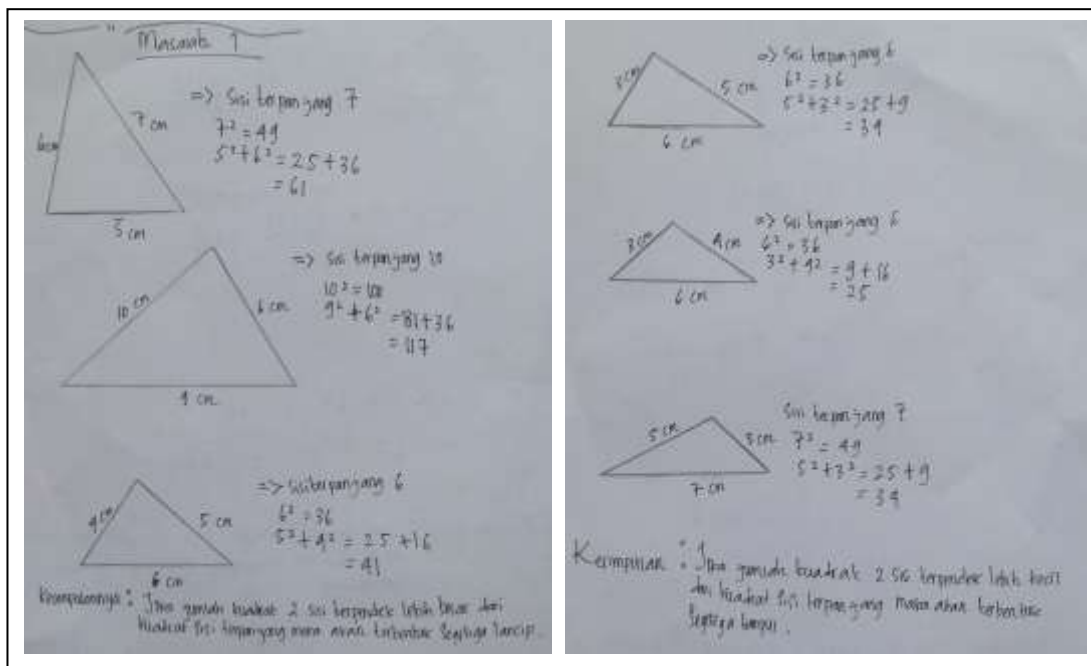 Masalah 1
6 cm
7 cm
5 cm
=> Sisi terpanjang 7
7² = 49
5² + 6² = 25 + 36
= 61
10 cm
6 cm
9 cm
=> Sisi terpanjang 10
10² = 100
9² + 6² = 81 + 36
= 117
4 cm
5 cm
6 cm
=> Sisi terpanjang 6
6² = 36
5² + 4² = 25 + 16
= 41
Kesimpulannya : Jika jumlah kuadrat 2 sisi terpendek lebih besar dari
kuadrat sisi terpanjang maka akan terbentuk segitiga lancip.
3 cm
5 cm
6 cm
=> Sisi terpanjang 6
6² = 36
5² + 3² = 25 + 9
= 34
3 cm
4 cm
6 cm
=> Sisi terpanjang 6
6² = 36
3² + 4² = 9 + 16
= 25
5 cm
3 cm
7 cm
Sisi terpanjang 7
7² = 49
5² + 3² = 25 + 9
= 34
: Jika jumlah kuadrat 2 sisi terpendek lebih kecil
dari kuadrat sisi terpanjang maka akan terbentuk
segitiga tumpul.